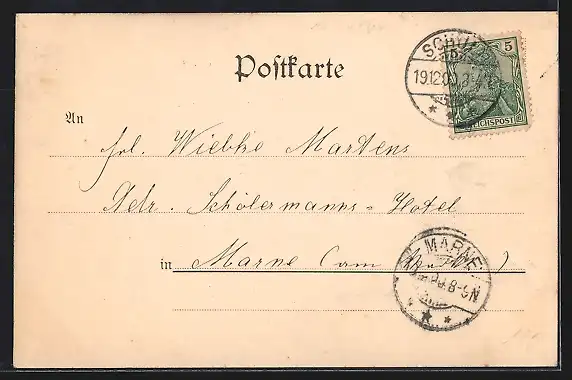 Postkarte
SCHÜ
5
19.12.00
REICHSPOST
An
Frl. Wiebke Martens
Adr. Schölermanns=Hotel
in Marne (am
MARNE
8-9N